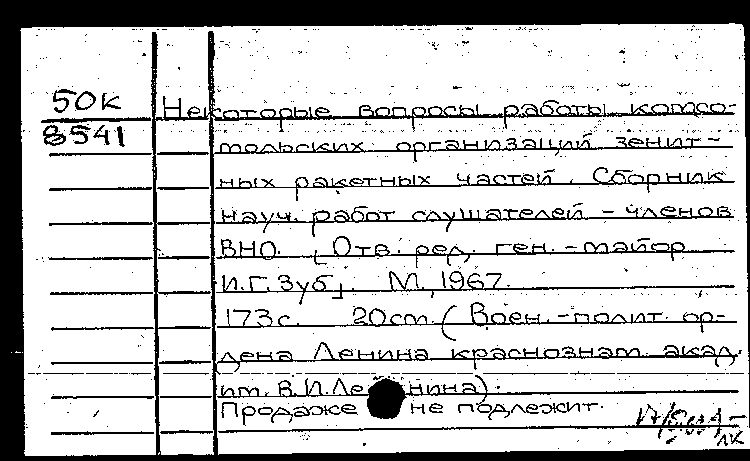 50К
8541
Некоторые вопросы работы комсо-
мольских организаций зенит-
ных ракетных частей. Сборник
науч. работ слушателей - членов
ВНО. [Отв. ред. ген.-майор
И.Г. Зуб]. М., 1967.
173 с. 20 см. (Воен.-полит. ор-
дена Ленина краснознам. акад.
им. В.И. Ленина).
Продаже не подлежит.